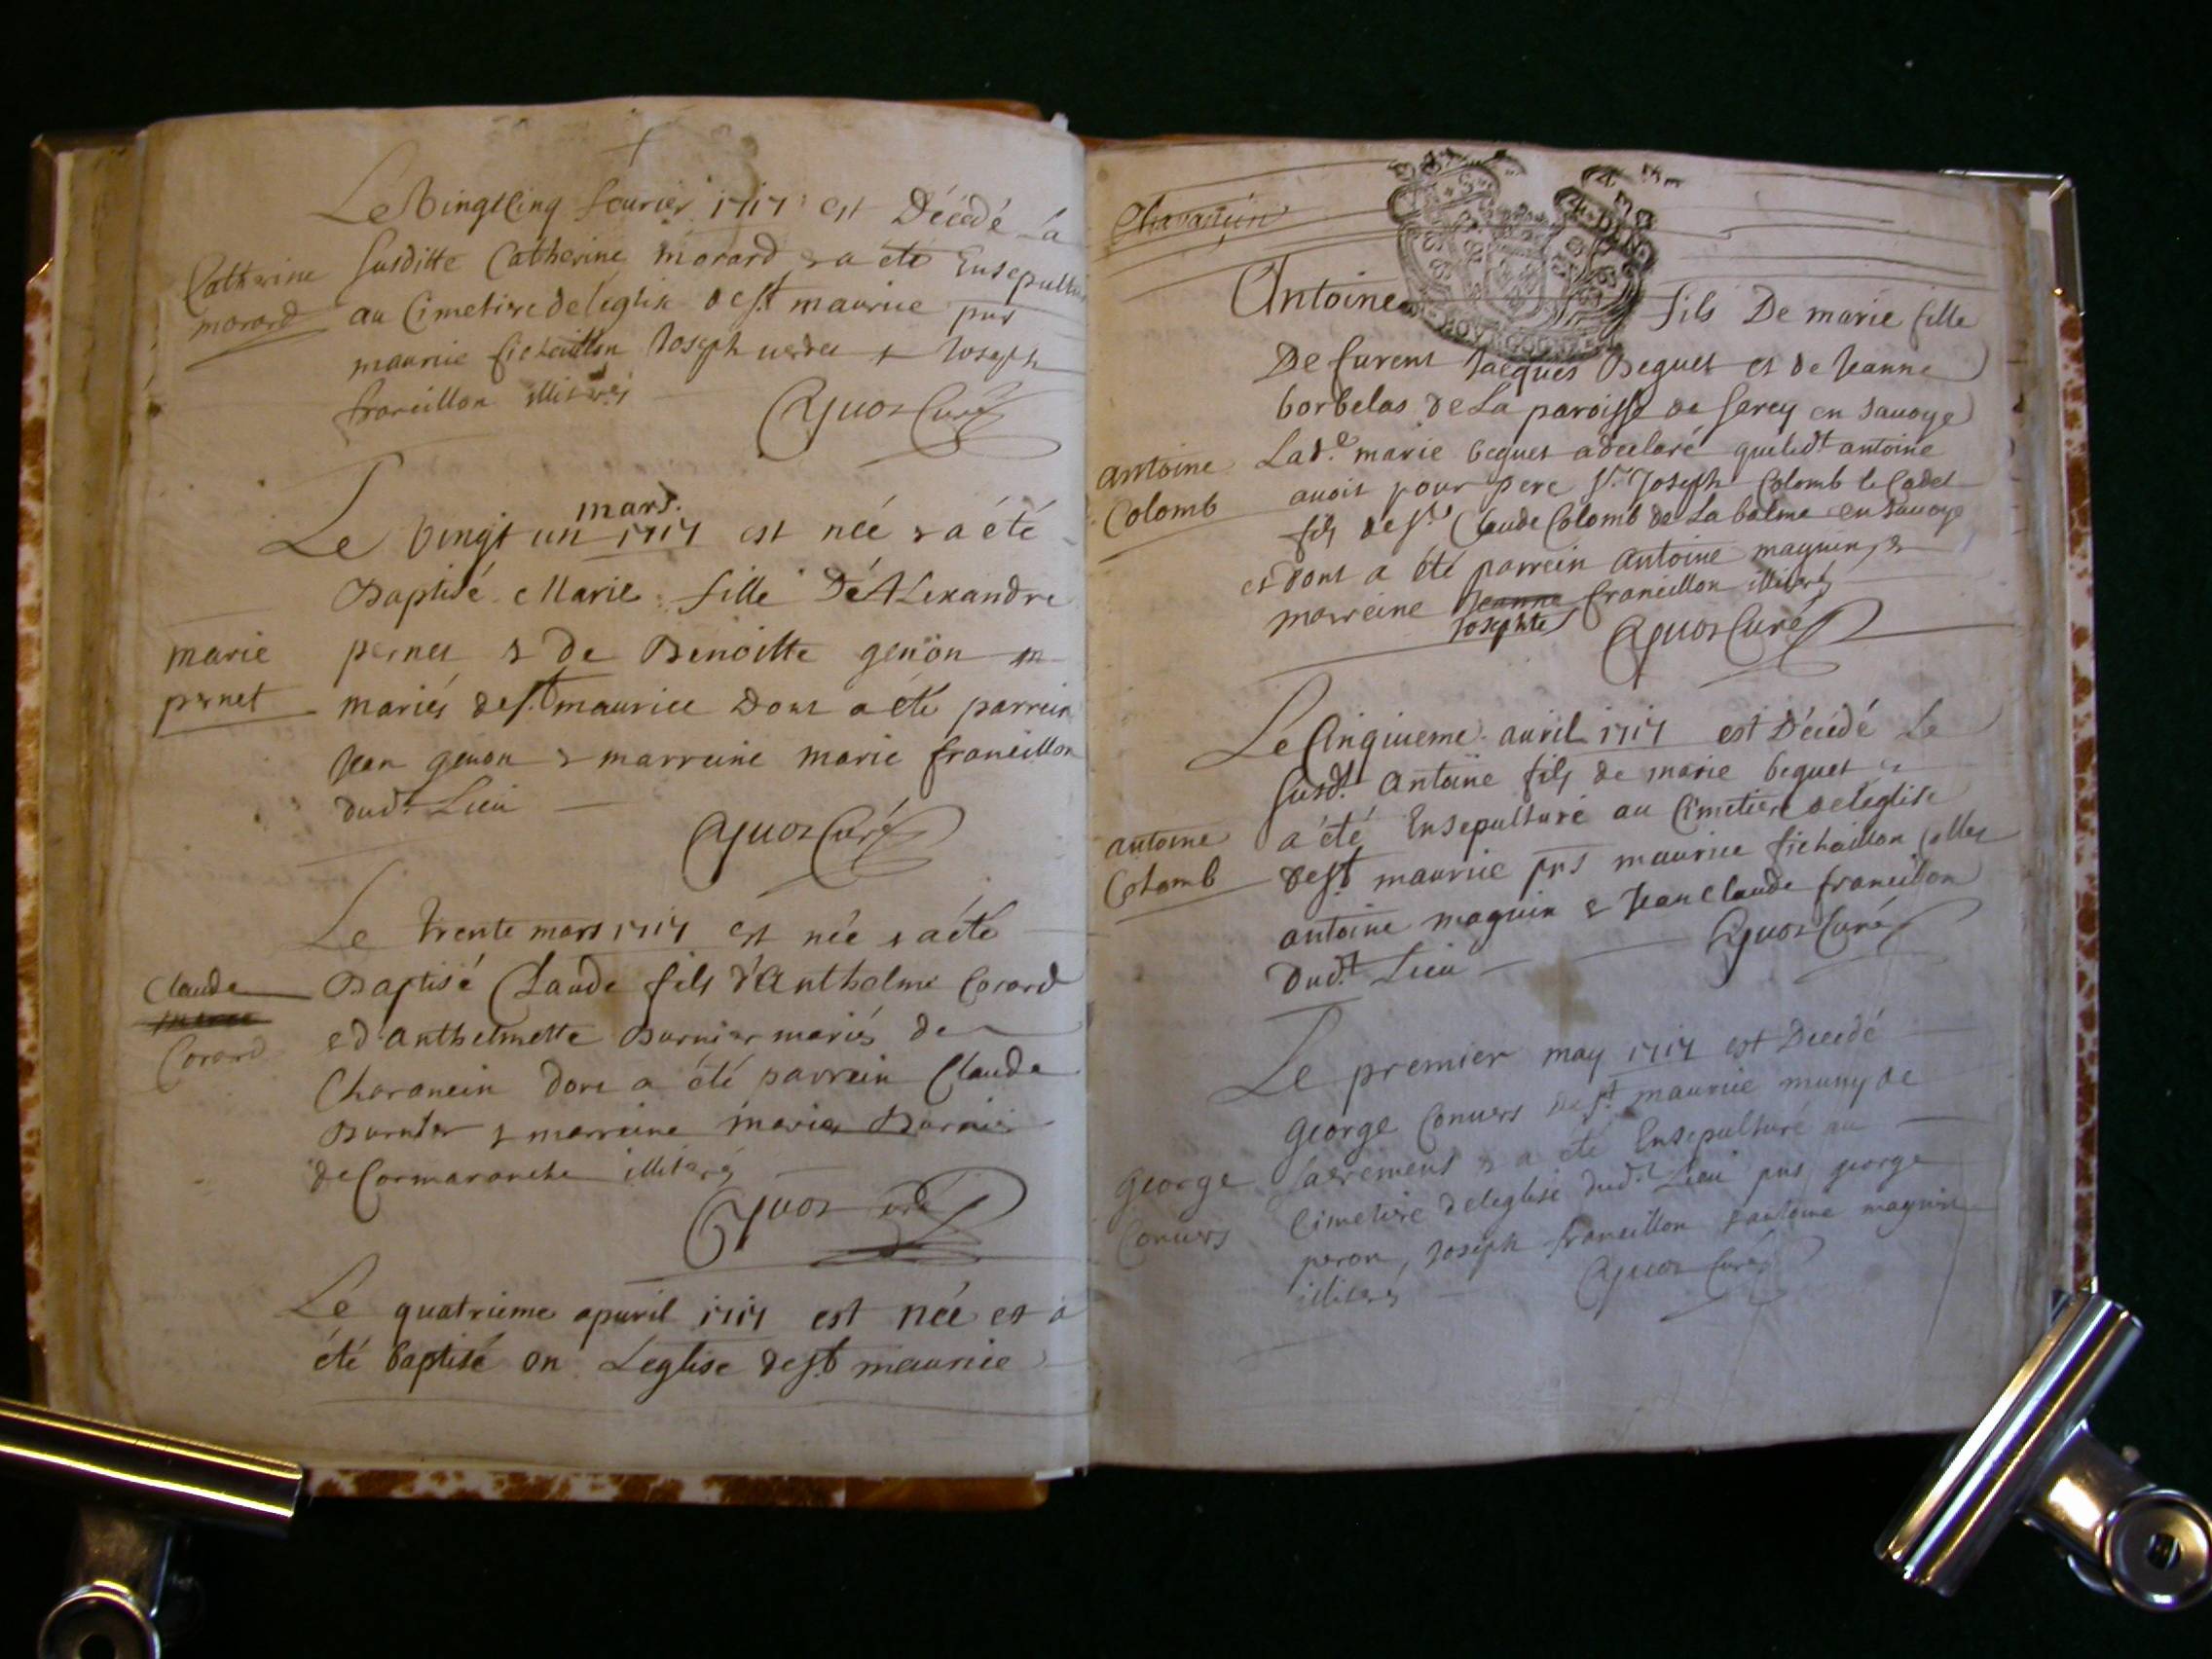 Le Vingt Cinq feurier 1717 est Décédé La
Catherine
morard
Susditte Catherine morard & a été Ensepultu
au Cimetire de leglise de st maurice pns
maurie fichaillon Joseph & Joseph
francillon illiterés
Cyuoz Curé
mars.
Le Vingt un 1717 est néé & a été
Baptisé Marie fille DéALexandre
marie
pernet
pernet & De Benoitte genon
mariés de st maurice Dont a été parrein
Jean genon & marreine marie francillon
dudt Lieu
Cyuoz Curé
Le trente mars 1717 est néé & a été
Claude
Corard
Baptisé Claude fils d'Anthelme Corard
& d'anthelmette Burnier mariés de
Charancin dont a été parrein Claude
Burnier & marreine marie Burnier
de Cormaranche illiterés
Cyuoz Curé
Le quatrieme apuril 1717 est néé et a
été baptisé en Leglise de st maurice
Charancin
Antoine fils De marie fille
De furent Jacques Beguet et de Jeanne
borbelas de La paroisse de serey en sauoye
antoine
Colomb
Lad.e marie beguet a declaré queledt antoine
auoit pour pere Sr. Joseph Colomb le Cadet
fils de Sr Claude Colomb de La balme en sauoye
et dont a été parrein antoine magnin &
marreine Jeanne francillon illiterés
Josephte
Cyuoz Curé
Le Cinquieme auril 1717 est Décédé Le
Susdt. Antoine fils de marie beguet &
antoine
Colomb
a été Ensepulturé au Cimetiere de leglise
de st maurice pns maurice fichaillon
antoine magnin & Jean Claude francillon
dudt. Lieu
Cyuoz Curé
Le premier may 1717 est Decedé
George Conuers de st maurice muny de
George
Conuers
sacrements & a été Ensepulturé au
Cimetire de leglise dudt. Lieu pns george
peron, Joseph francillon & antoine magnin
illiterés
Cyuoz Curé